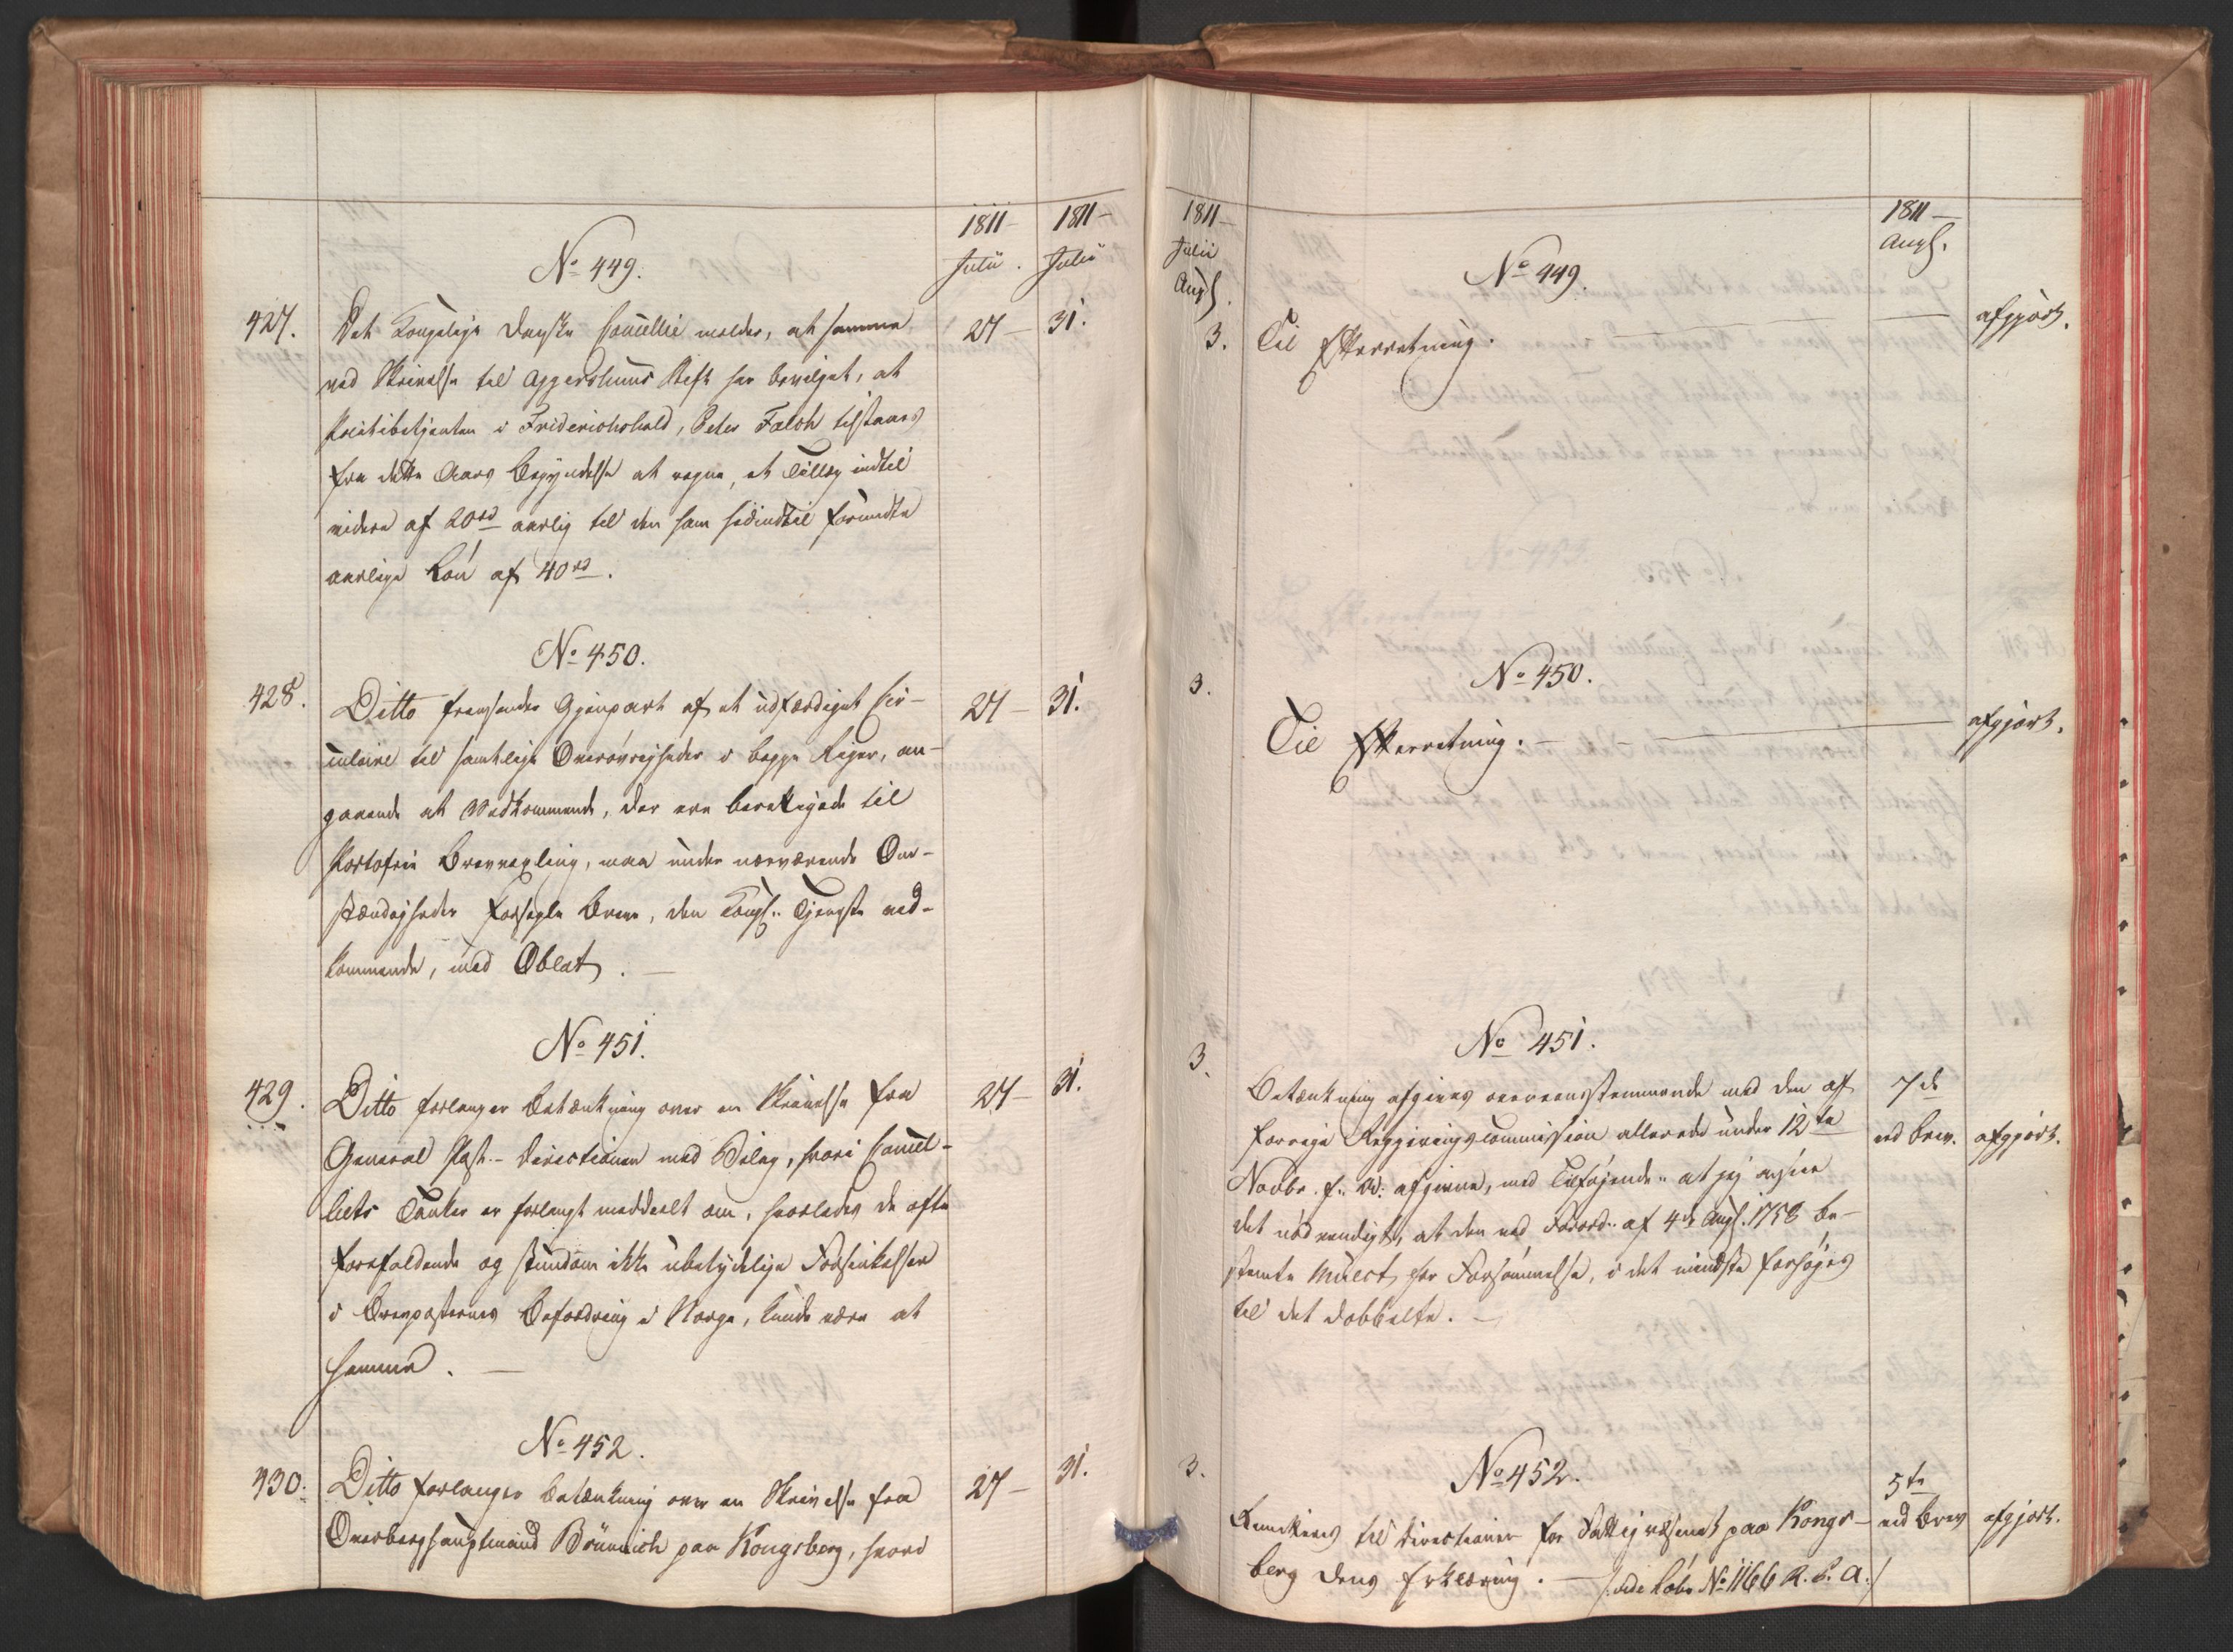 1811 –
1811 –
Julii.
Julii
No 449.
427.
Det Kongelige Danske Cancellie melder, at samme
27 –
31.
ved Skrivelse til Aggershuus Stift har bevilget, at
Politibetjenten i Friderichshald, Peter Falch tilstaaes
fra dette Aars Begyndelse at regne, et Tillæg indtil
videre af 20rd aarlig til den ham hidindtil forundte
aarlige Løn af 40rd.
No 450.
428.
Ditto fremsender Gjenpart af et udfærdiget Cir-
27 –
31.
culaire til samtlige Overøvrigheder i begge Riger, an-
gaaende at Vedkommende, der ere berettigede til
Portofrie Brevvexling, maa under nærværende Om-
stændigheder forsegle Breve, den Kongl. Tjeneste ved-
kommende, med Oblat. –
No 451.
429.
Ditto forlanger Betænkning over en Skrivelse fra
27 –
31.
General Post-Directionen med Bilag, hvori Cancel-
liets Tanker er forlangt meddeelt om, hvorledes de ofte
forefaldende og stundom ikke ubetydelige Forsinkelser
i Brevposternes Befordring i Norge, kunde være at
hemme. –
No 452.
430.
Ditto forlanger Betænkning over en Skrivelse fra
27 –
31.
Overberghauptmand Brünnich paa Kongsberg, hvori
1811 –
Julii
Augs.
1811 –
Augs.
No 449.
3.
Til Efterretning.
afgjort.
No 450.
3.
Til Efterretning. –
afgjort.
No 451.
3.
Betænkning afgives overeensstemmende med den af
7de
forrige Regjeringscommission allerede under 12te
ved Brev.
afgjort.
Novbr. f. A. afgivne, med Tilføjende at jeg anseer
det nødvendigt, at den ved Forord. af 4de Augs. 1758 be-
stemte Mulct for Forsømmelse, i det mindste forhøjes
til det dobbelte. –
No 452.
3.
5te
Remitteres til Directionen for Fattigvæsenet paa Kongs-
ved Brev
afgjort.
berg dens Erklæring. –
/: vide Lobr No 1166 R. P. A :/